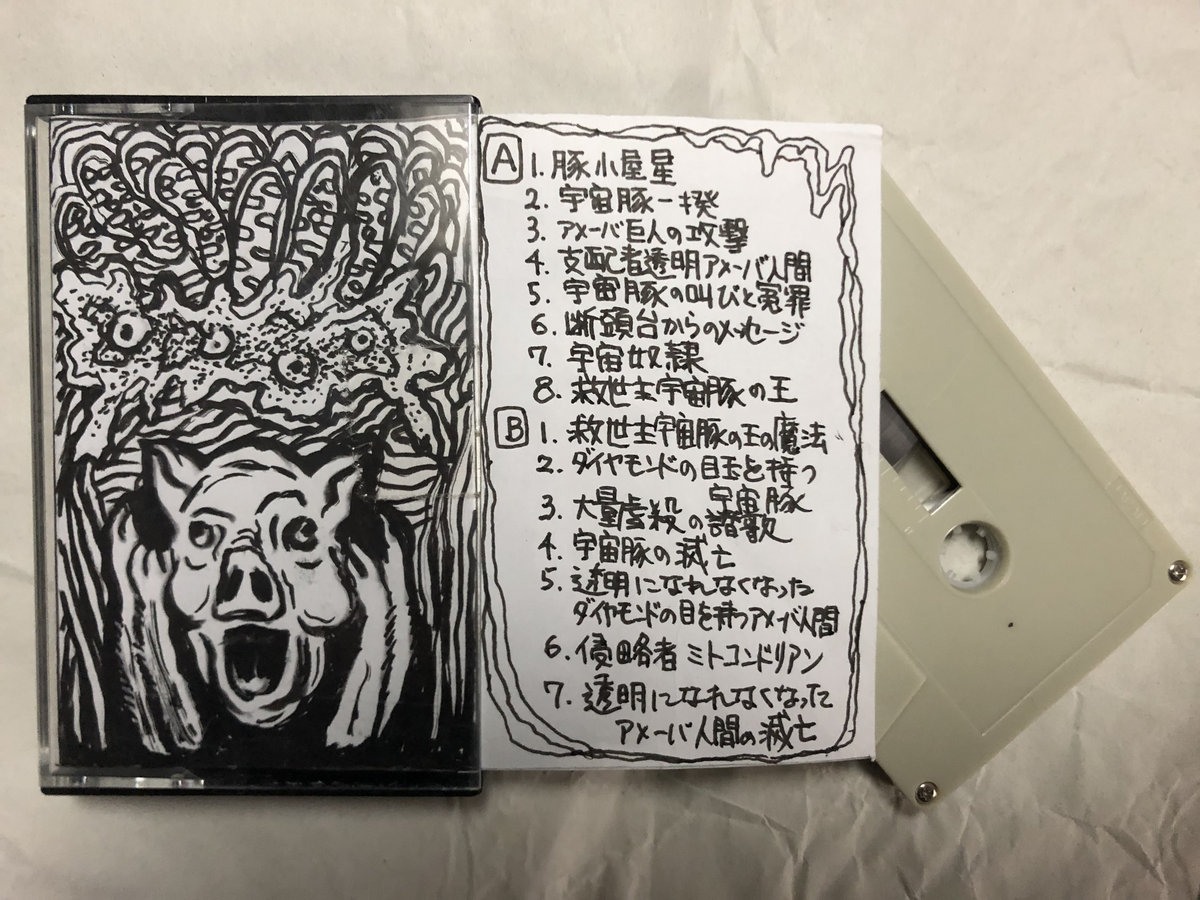 A 1. 豚小屋星
2. 宇宙豚一揆
3. アメーバ巨人の攻撃
4. 支配者透明アメーバ人間
5. 宇宙豚の叫びと冤罪
6. 断頭台からのメッセージ
7. 宇宙奴隷
8. 救世主宇宙豚の王
B 1. 救世主宇宙豚の王の魔法
2. ダイヤモンドの目玉を持つ
宇宙豚
3. 大量虐殺の讃歌
4. 宇宙豚の滅亡
5. 透明になれなくなった
ダイヤモンドの目を持つアメーバ人間
6. 侵略者ミトコンドリアン
7. 透明になれなくなった
アメーバ人間の滅亡